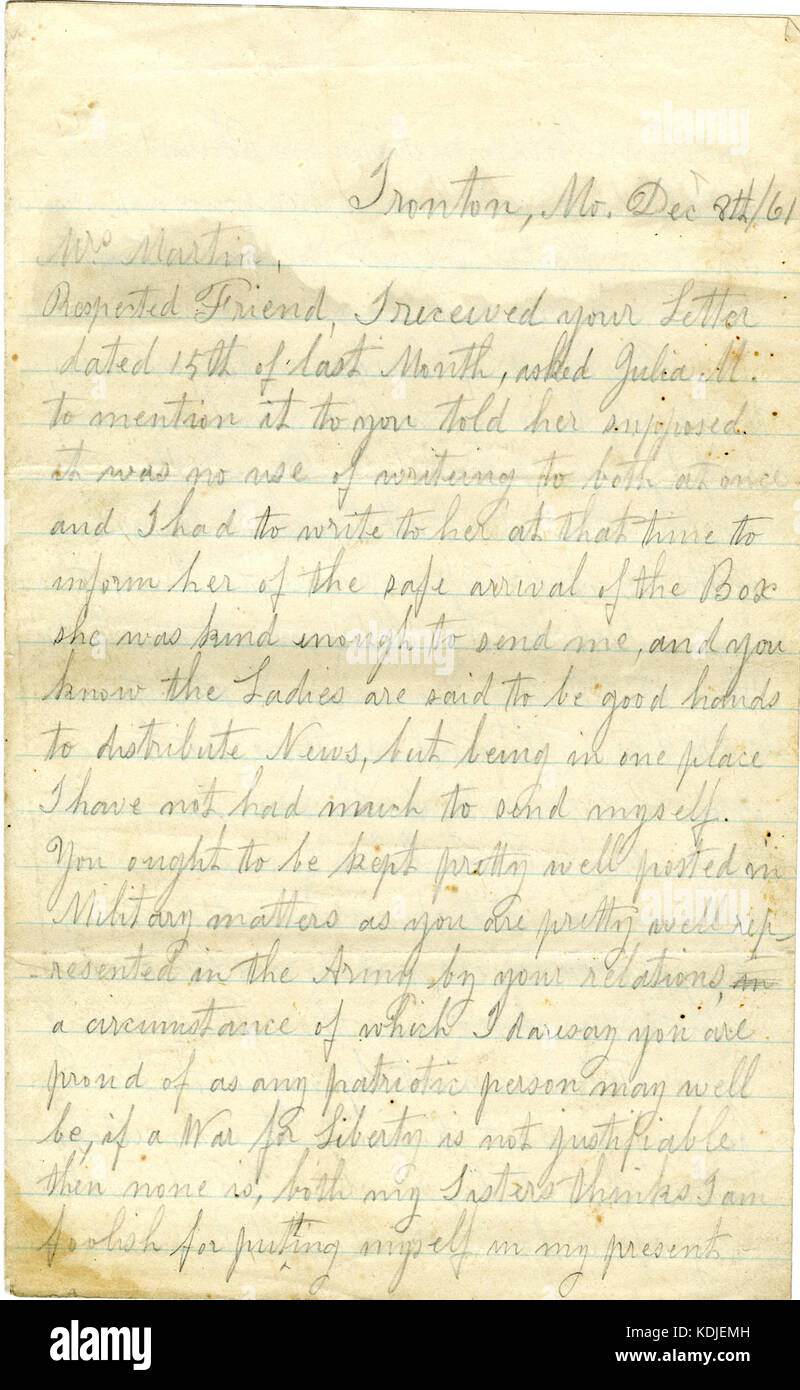 Ironton, Mo. Dec 8th/61
Mrs Martin,
Respected Friend, I received your Letter
dated 15th of last Month, asked Julia M.
to mention it to you told her supposed
it was no use of writeing to both at once
and I had to write to her at that time to
inform her of the safe arrival of the Box
she was kind enough to send me, and you
know the Ladies are said to be good hands
to distribute News, but being in one place
I have not had much to send myself.
You ought to be kept pretty well posted in
Military matters as you are pretty well rep-
resented in the Army by your relations, in
a circumstance of which I daresay you are
proud of as any patriotic person may well
be, if a War for Liberty is not justifiable
then none is, both my Sisters thinks I am
foolish for putting myself in my present
alamy
alamy
alamy
Image ID: KDJEMH
www.alamy.com